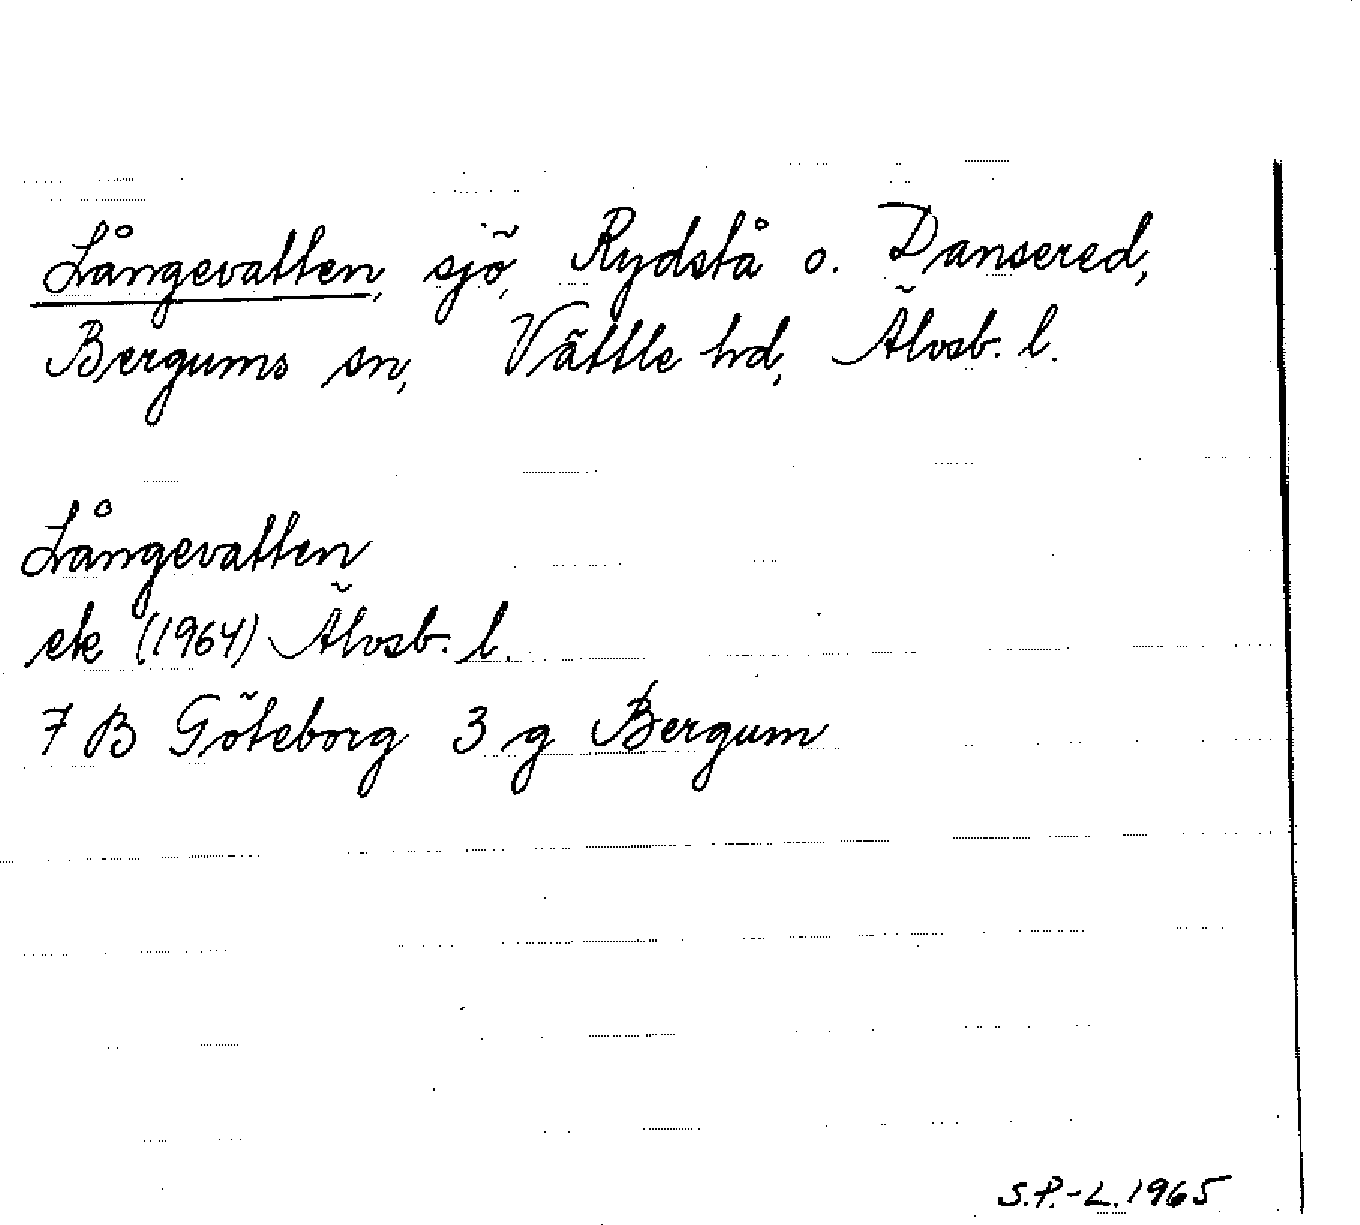 Långevatten, sjö, Rydstå o. Dansered,
Bergums sn, Vättle hd, Älvsb. l.
Långevatten
ek (1964) Älvsb. l.
7 B Göteborg 3 g Bergum
S.P.-L. 1965